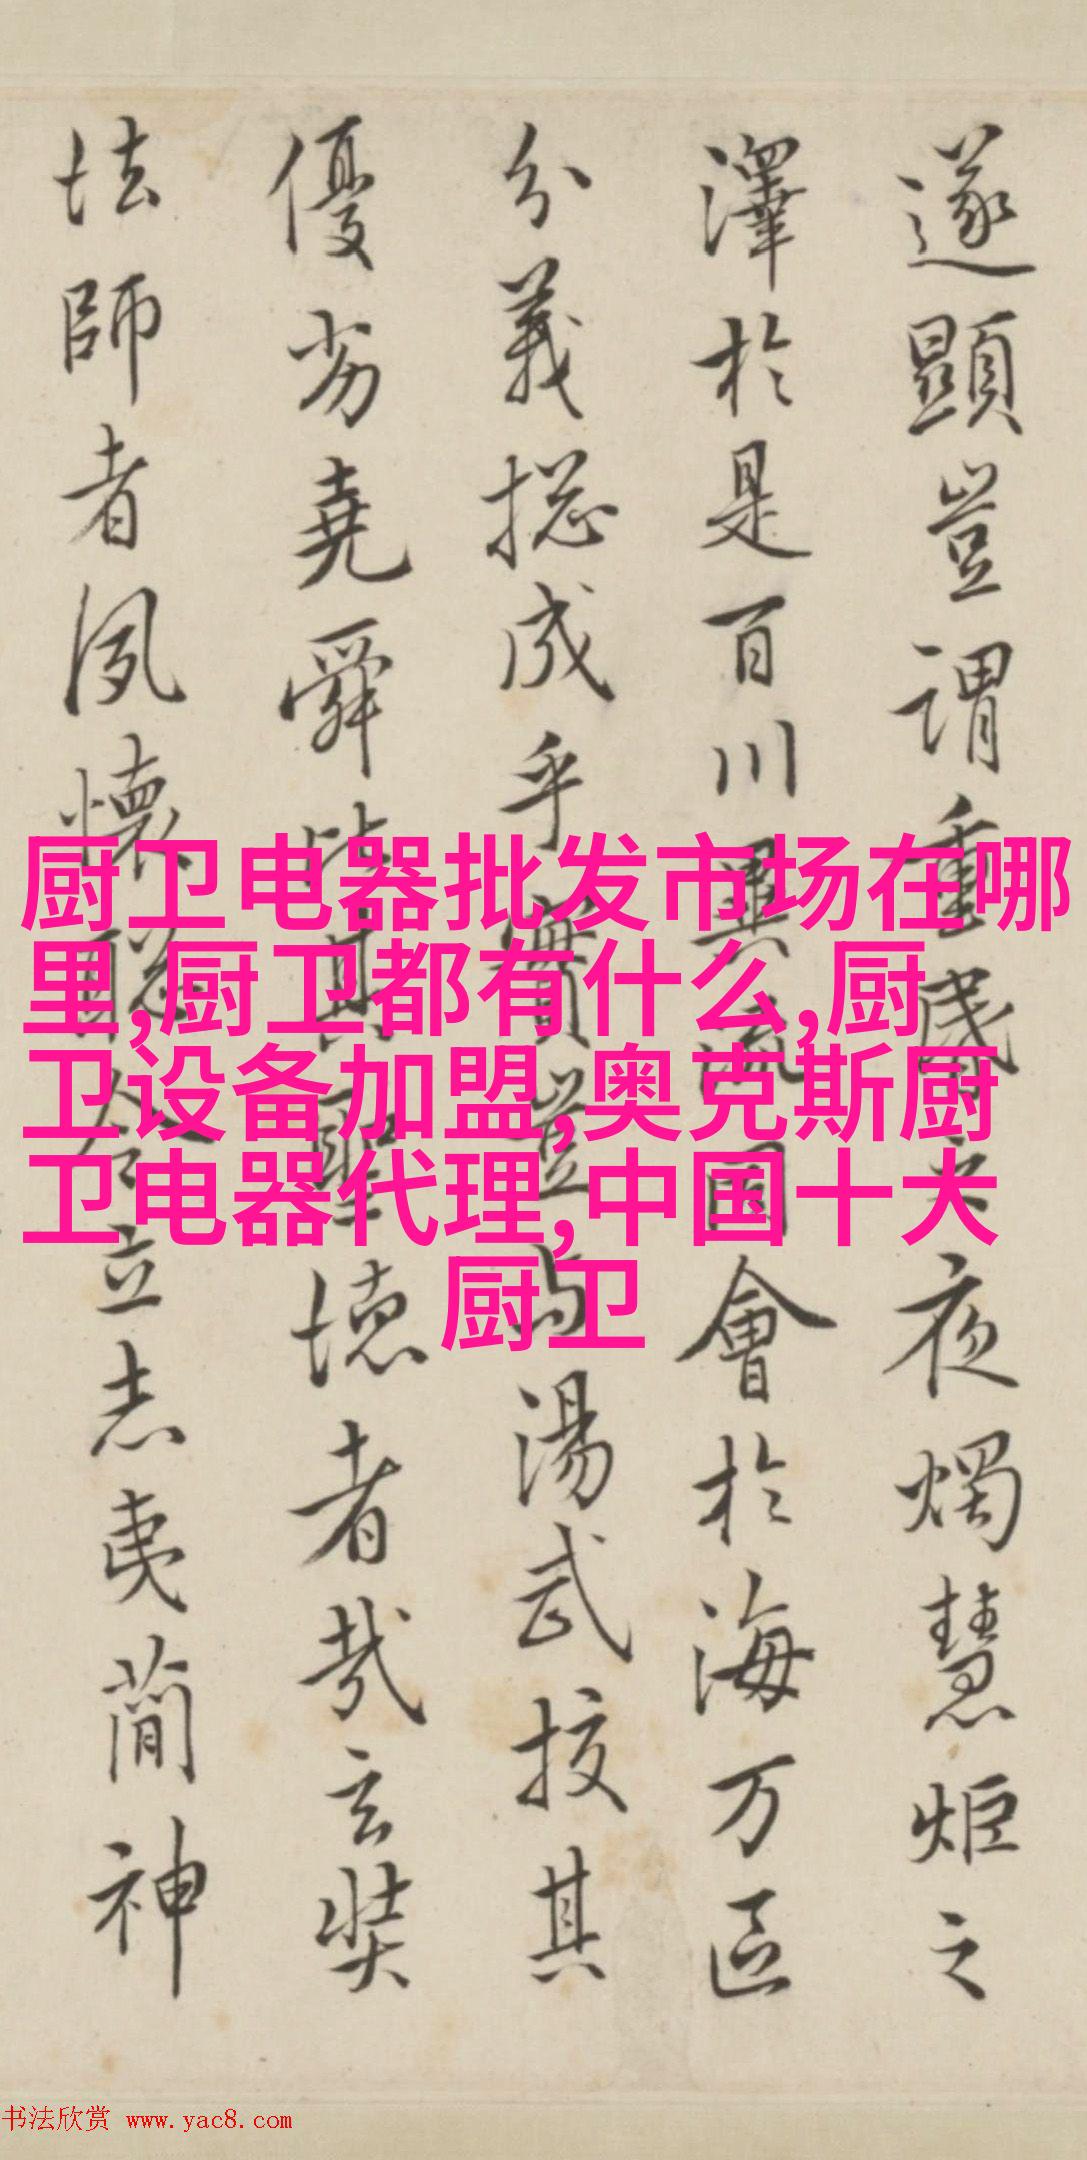 遂顯豈謂重昬之夜燭慧炬之
澤於是百川異流同會於海万區
分義捴成乎實豈与湯武挍其
優劣堯舜比其聖德者哉玄奘
法師者夙懷聡令立志夷簡神
厨卫电器批发市场在哪
里,厨卫都有什么,厨
卫设备加盟,奥克斯厨
卫电器代理,中国十大
厨卫
书法欣赏 www.yac8.com